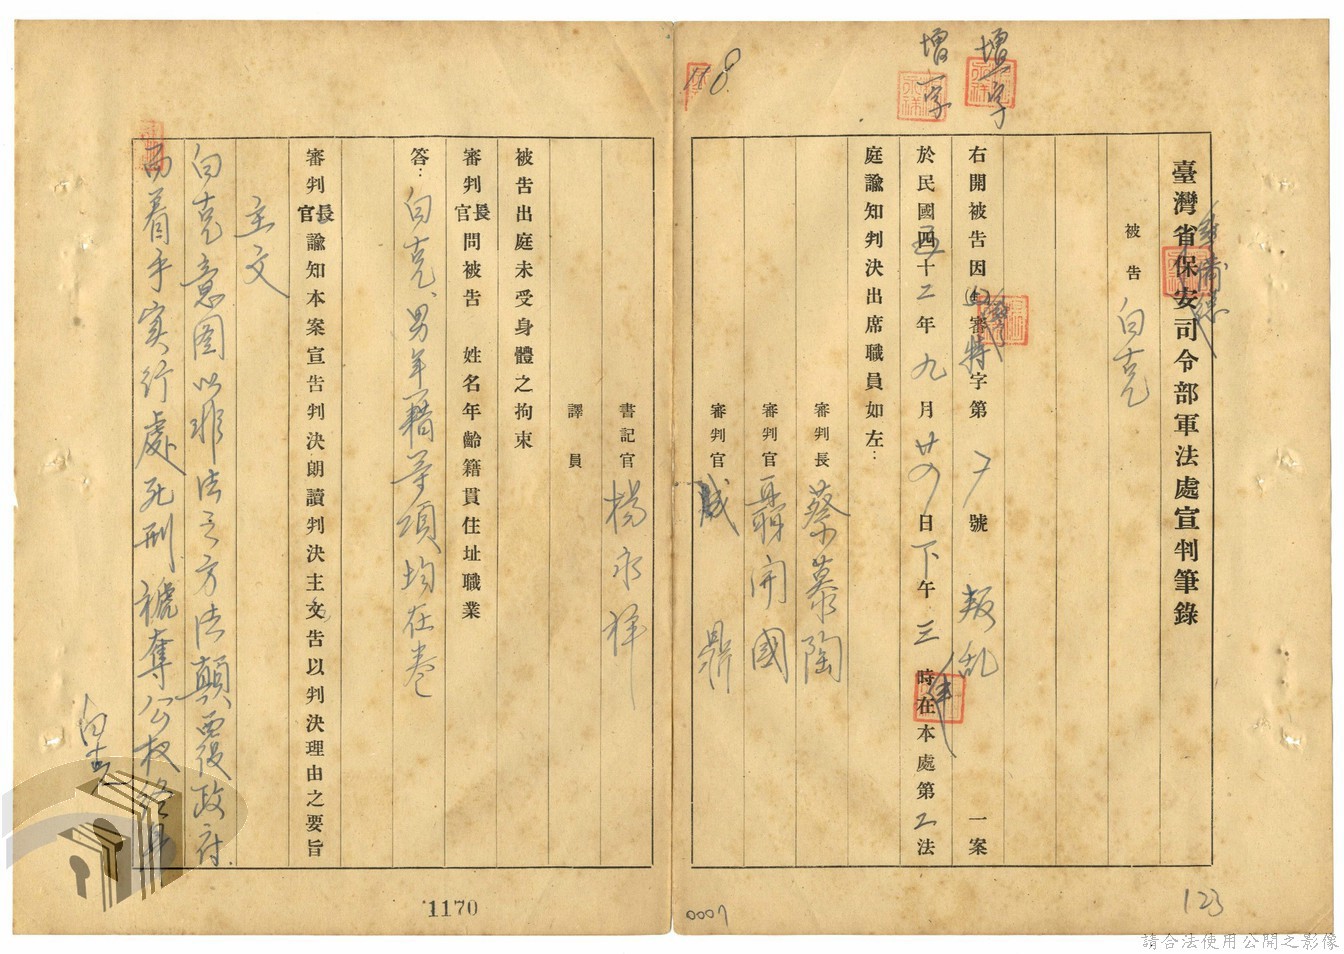 增一字
增一字
臺灣省保安司令部軍法處宣判筆錄
警備總
被告 白克
右開被告因(52)審特字第 號 叛乱 一案
於民國五十二年九月廿四日下午三時在本處第二法
庭諭知判決出席職員如左：
審判長 蔡慕陶
審判官 聶開國
審判官 成鼎
書記官 楊永祥
譯員
被告出庭未受身體之拘束
審判長官問被告 姓名年齡籍貫住址職業
答：白克、男年籍等項均在卷
審判長官諭知本案宣告判決朗讀判決主文告以判決理由之要旨
主文
白克意图以非法之方法顛覆政府
而着手实行處死刑褫奪公权終身
白克
118
1170
0007
123
請合法使用公開之影像